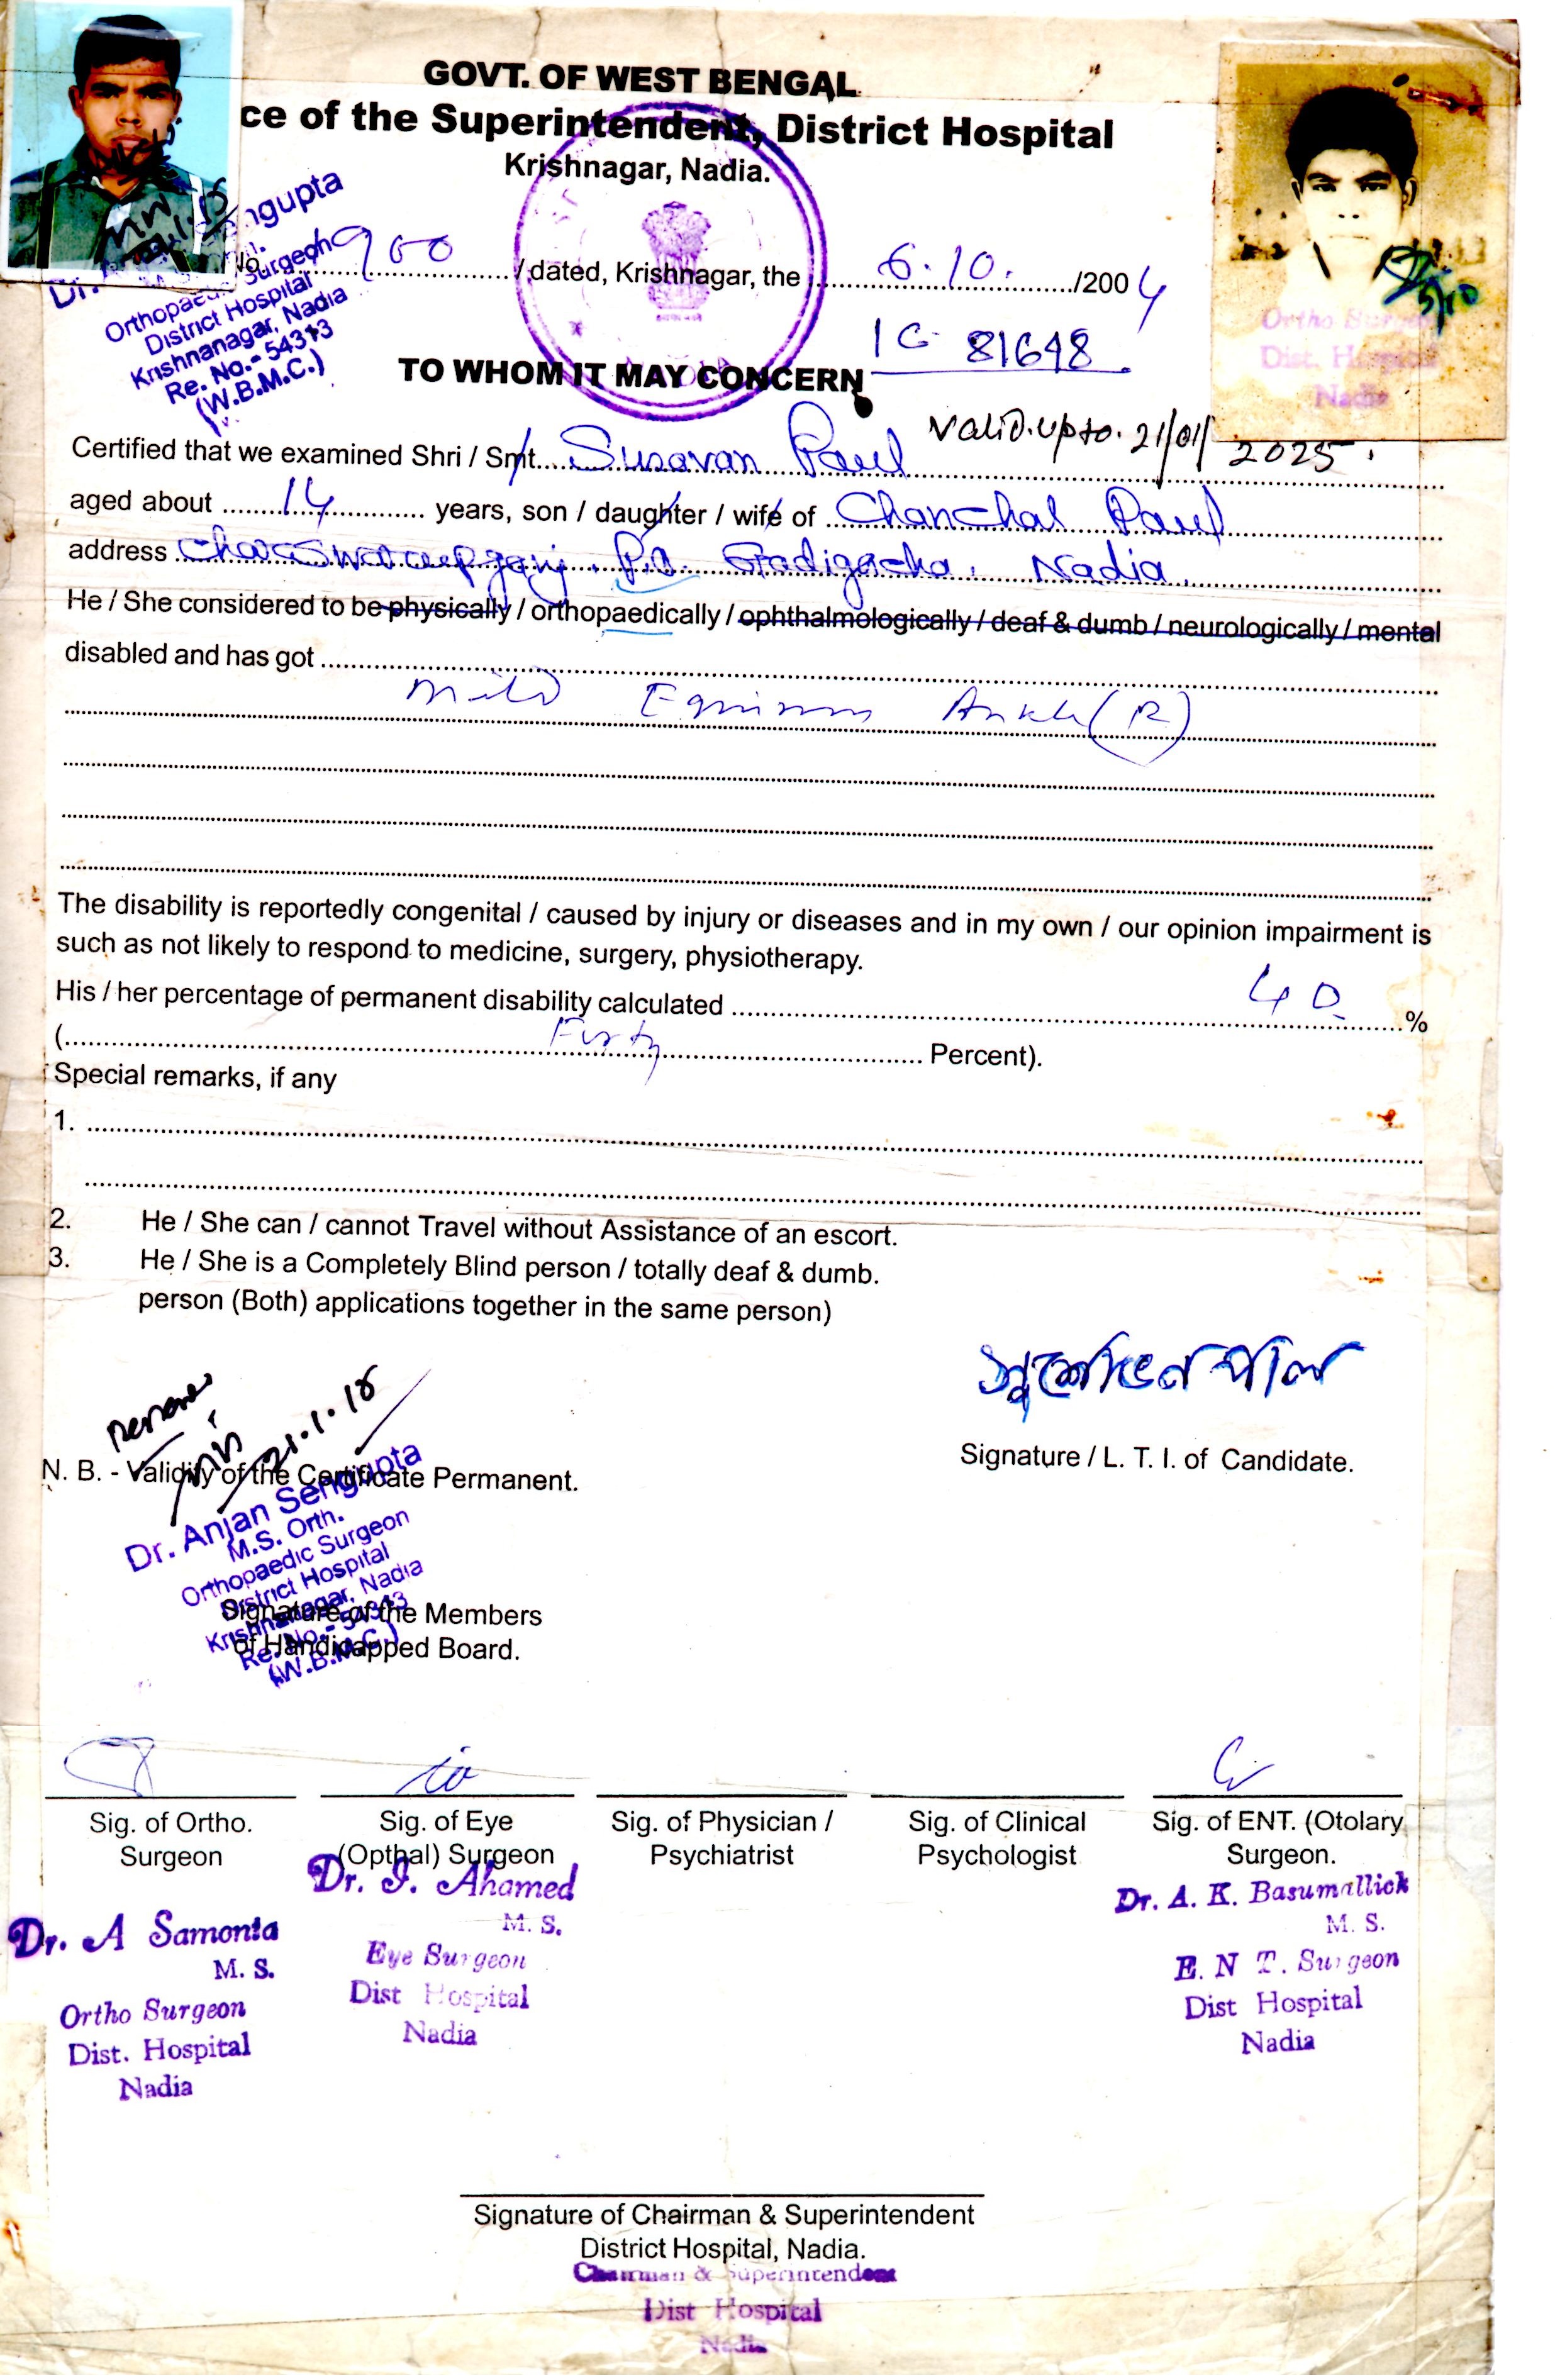 GOVT. OF WEST BENGAL
ce of the Superintendent, District Hospital
Krishnagar, Nadia.
No. 900 / dated, Krishnagar, the 6.10. /2004
81648
TO WHOM IT MAY CONCERN
Valid. upto. 21/01/2025.
Certified that we examined Shri / Smt. Susavan Paul
aged about 14 years, son / daughter / wife of Chanchal Paul
address P.O. Gadigacha, Nadia.
He / She considered to be physically / orthopaedically / ophthalmologically / deaf & dumb / neurologically / mental
disabled and has got
mild Equinus Ankle (R)
The disability is reportedly congenital / caused by injury or diseases and in my own / our opinion impairment is
such as not likely to respond to medicine, surgery, physiotherapy.
His / her percentage of permanent disability calculated 40 %
( Forty Percent).
Special remarks, if any
1.
2. He / She can / cannot Travel without Assistance of an escort.
3. He / She is a Completely Blind person / totally deaf & dumb.
person (Both) applications together in the same person)
সুশোভন পাল
Signature / L. T. I. of Candidate.
21.1.15
N. B. - Validity of the Certificate Permanent.
Dr. Anjan Sengupta
M.S. Orth.
Orthopaedic Surgeon
District Hospital
Krishnanagar, Nadia
Re. No.- 54313
(W.B.M.C.)
Signature of the Members
of Handicapped Board.
Sig. of Ortho.
Surgeon
Sig. of Eye
(Opthal) Surgeon
Sig. of Physician /
Psychiatrist
Sig. of Clinical
Psychologist
Sig. of ENT. (Otolary
Surgeon.
Dr. A Samonta
M. S.
Ortho Surgeon
Dist. Hospital
Nadia
Dr. I. Ahamed
M. S.
Eye Surgeon
Dist Hospital
Nadia
Dr. A. K. Basumallick
M. S.
E. N T. Surgeon
Dist Hospital
Nadia
Signature of Chairman & Superintendent
District Hospital, Nadia.
Chairman & Superintendent
Dist Hospital
Nadia
ngupta
Orthopaed Surgeon
District Hospital
Krishnanagar, Nadia
Re. No.- 54313
(W.B.M.C.)
Ortho Surgeon
Dist. Hospital
Nadia